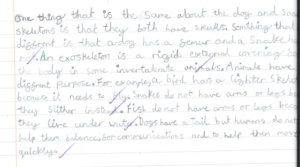 One thing that is the same about the dog and snake
skeletons is that they both have skulls. Somthing that is
diffrent is that a dog has a femur and a snake has
not. An exoskeleton is a rigid external covering for
the body in some invertebrate animals. Animals have
diffrent purpose. For example a bird has a lighter skeleton
becouse it needs to fly. Snakes do not have arms or legs bec
they slither instead. Fish do not have arms or legs beca
they live under water. Dogs have a tail but humans do not
help then balence, for communications and to help then move
quickley.